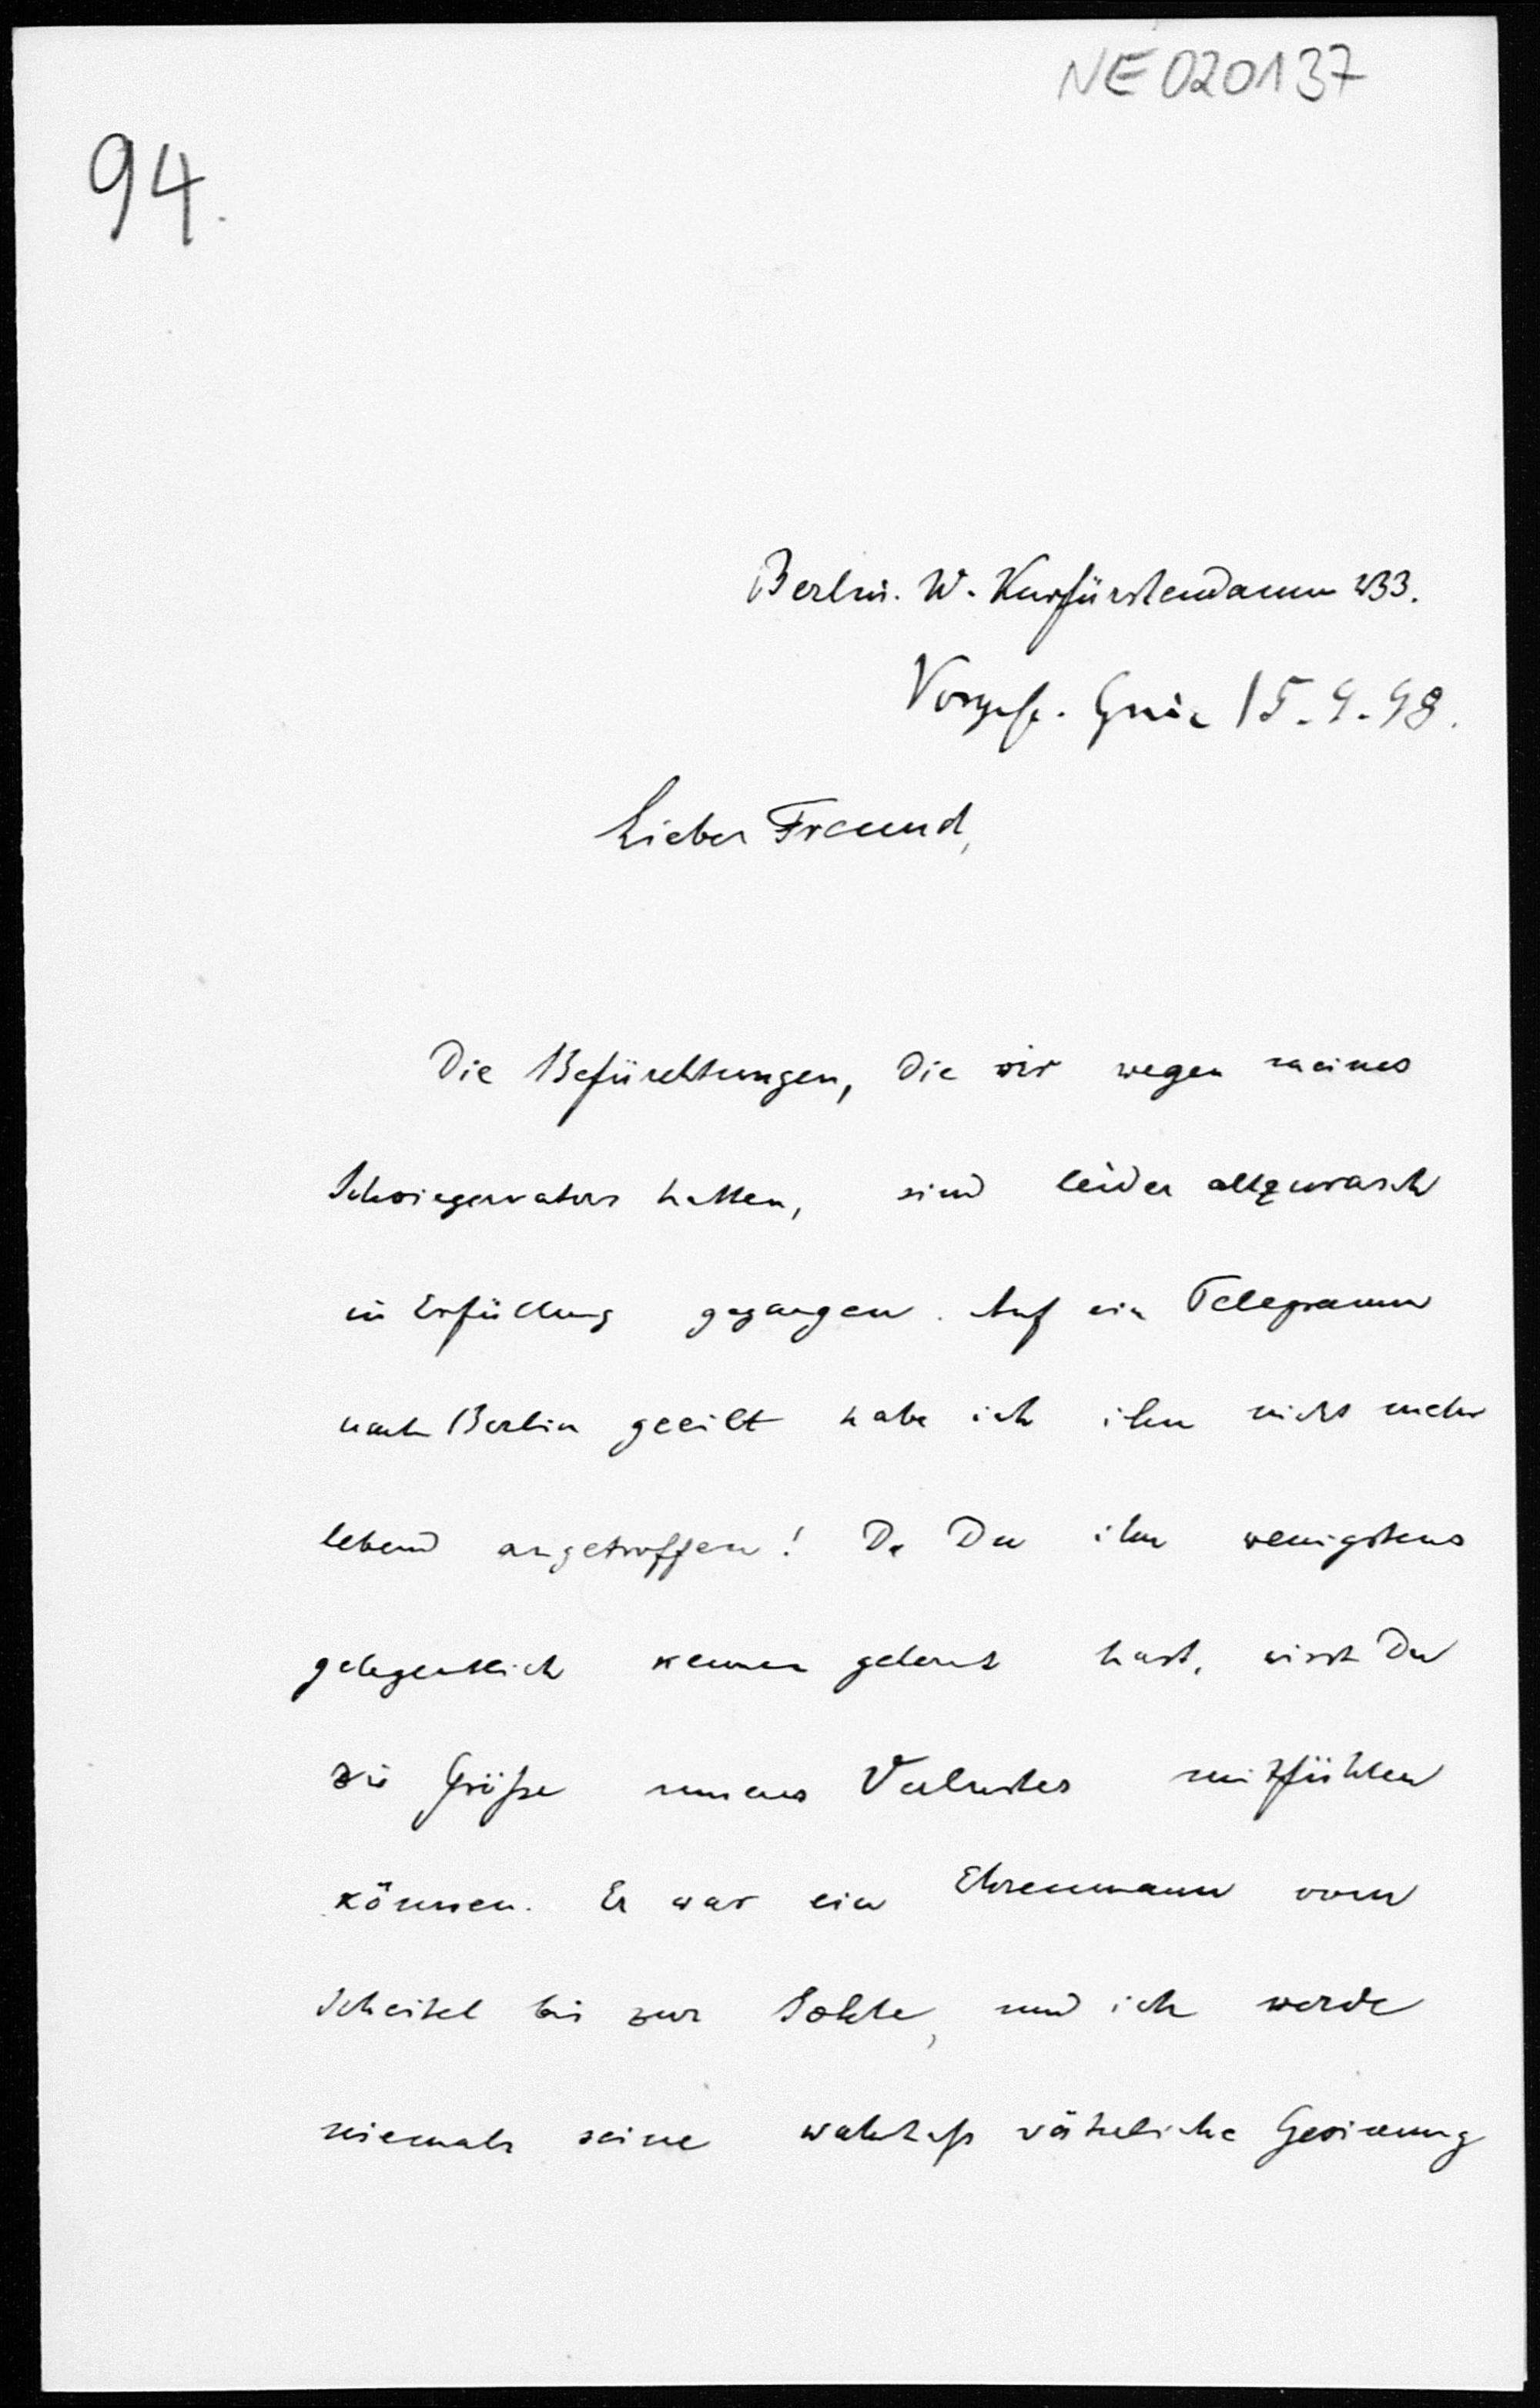 NE020137
94.
Berlin. W. Kurfürstendamm 233.
15.4.98.
Lieber Freund,
Die Befürchtungen, die wir wegen meines
Schwiegervaters hatten, sind leider allzurasch
in Erfüllung gegangen. Auf ein Telegramm
nach Berlin geeilt habe ich ihn nicht mehr
lebend angetroffen! Da Du ihn wenigstens
gelegentlich kennen gelernt hast, wirst Du
die Größe unseres Verlustes mitfühlen
können. Er war ein Ehrenmann vom
Scheitel bis zur Sohle, und ich werde
niemals seine wahrhaft väterliche Gesinnung